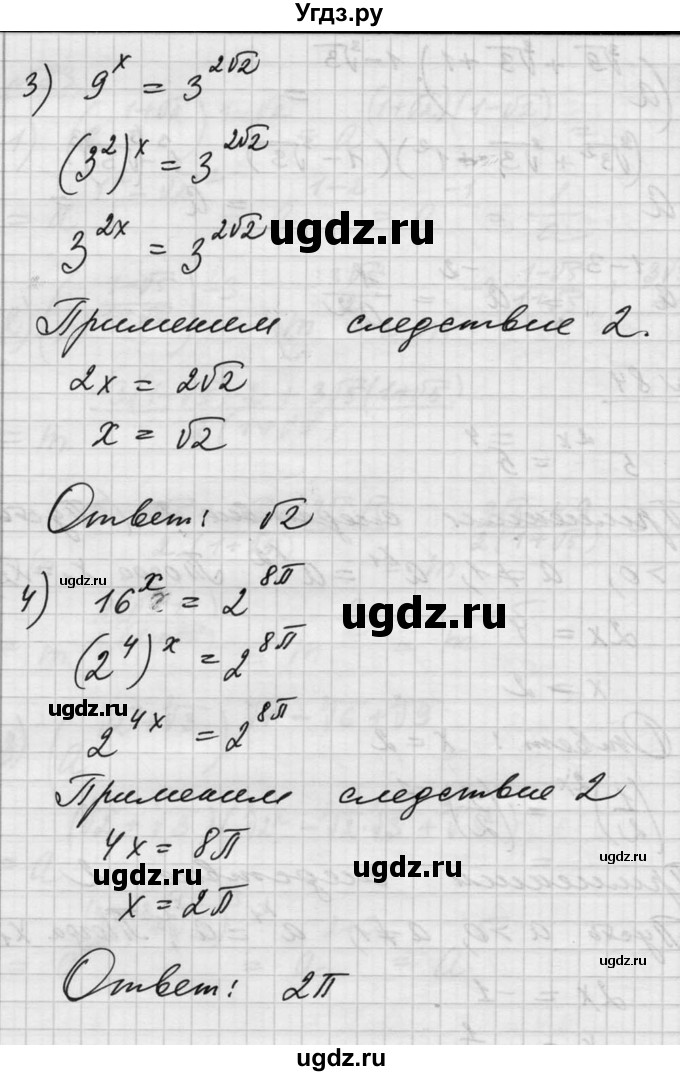 Угдз.ру
3) 9^x = 3^{2√2}
(3^2)^x = 3^{2√2}
3^{2x} = 3^{2√2}
ugdz.ru
Применим следствие 2.
2x = 2√2
x = √2
Ответ: √2
ugdz.ru
4) 16^x = 2^{8π}
ugdz.ru
(2^4)^x = 2^{8π}
ugdz.ru
2^{4x} = 2^{8π}
Применим следствие 2
4x = 8π
ugdz.ru
ugdz.ru
ugdz.ru
x = 2π
ugdz.ru
Ответ: 2π
ugdz.ru